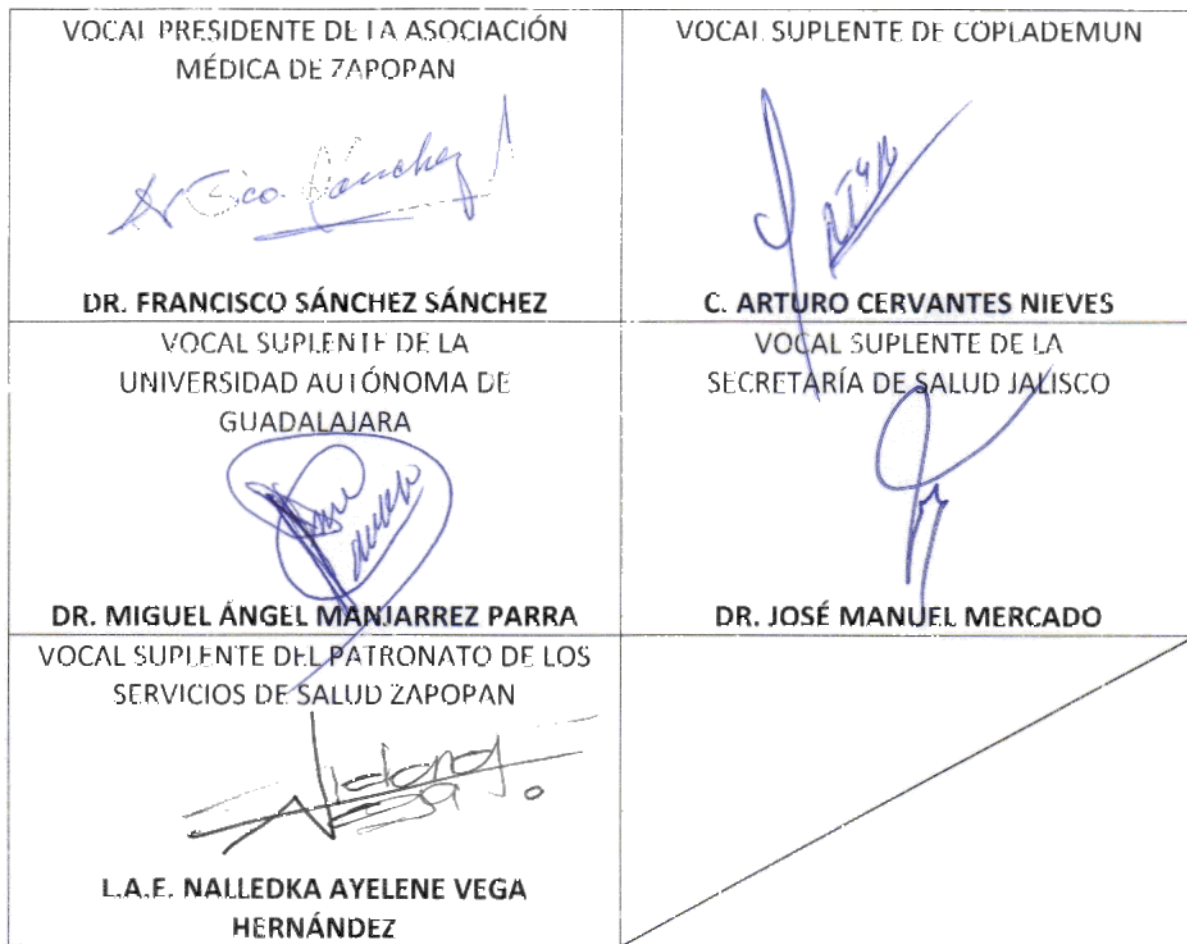 VOCAL PRESIDENTE DE LA ASOCIACIÓN
MÉDICA DE ZAPOPAN
Dr Fco. Sánchez
DR. FRANCISCO SÁNCHEZ SÁNCHEZ
VOCAL SUPLENTE DE COPLADEMUN
C. ARTURO CERVANTES NIEVES
VOCAL SUPLENTE DE LA
UNIVERSIDAD AUTÓNOMA DE
GUADALAJARA
DR. MIGUEL ÁNGEL MANJARREZ PARRA
VOCAL SUPLENTE DE LA
SECRETARÍA DE SALUD JALISCO
DR. JOSÉ MANUEL MERCADO
VOCAL SUPLENTE DEL PATRONATO DE LOS
SERVICIOS DE SALUD ZAPOPAN
L.A.E. NALLEDKA AYELENE VEGA
HERNÁNDEZ